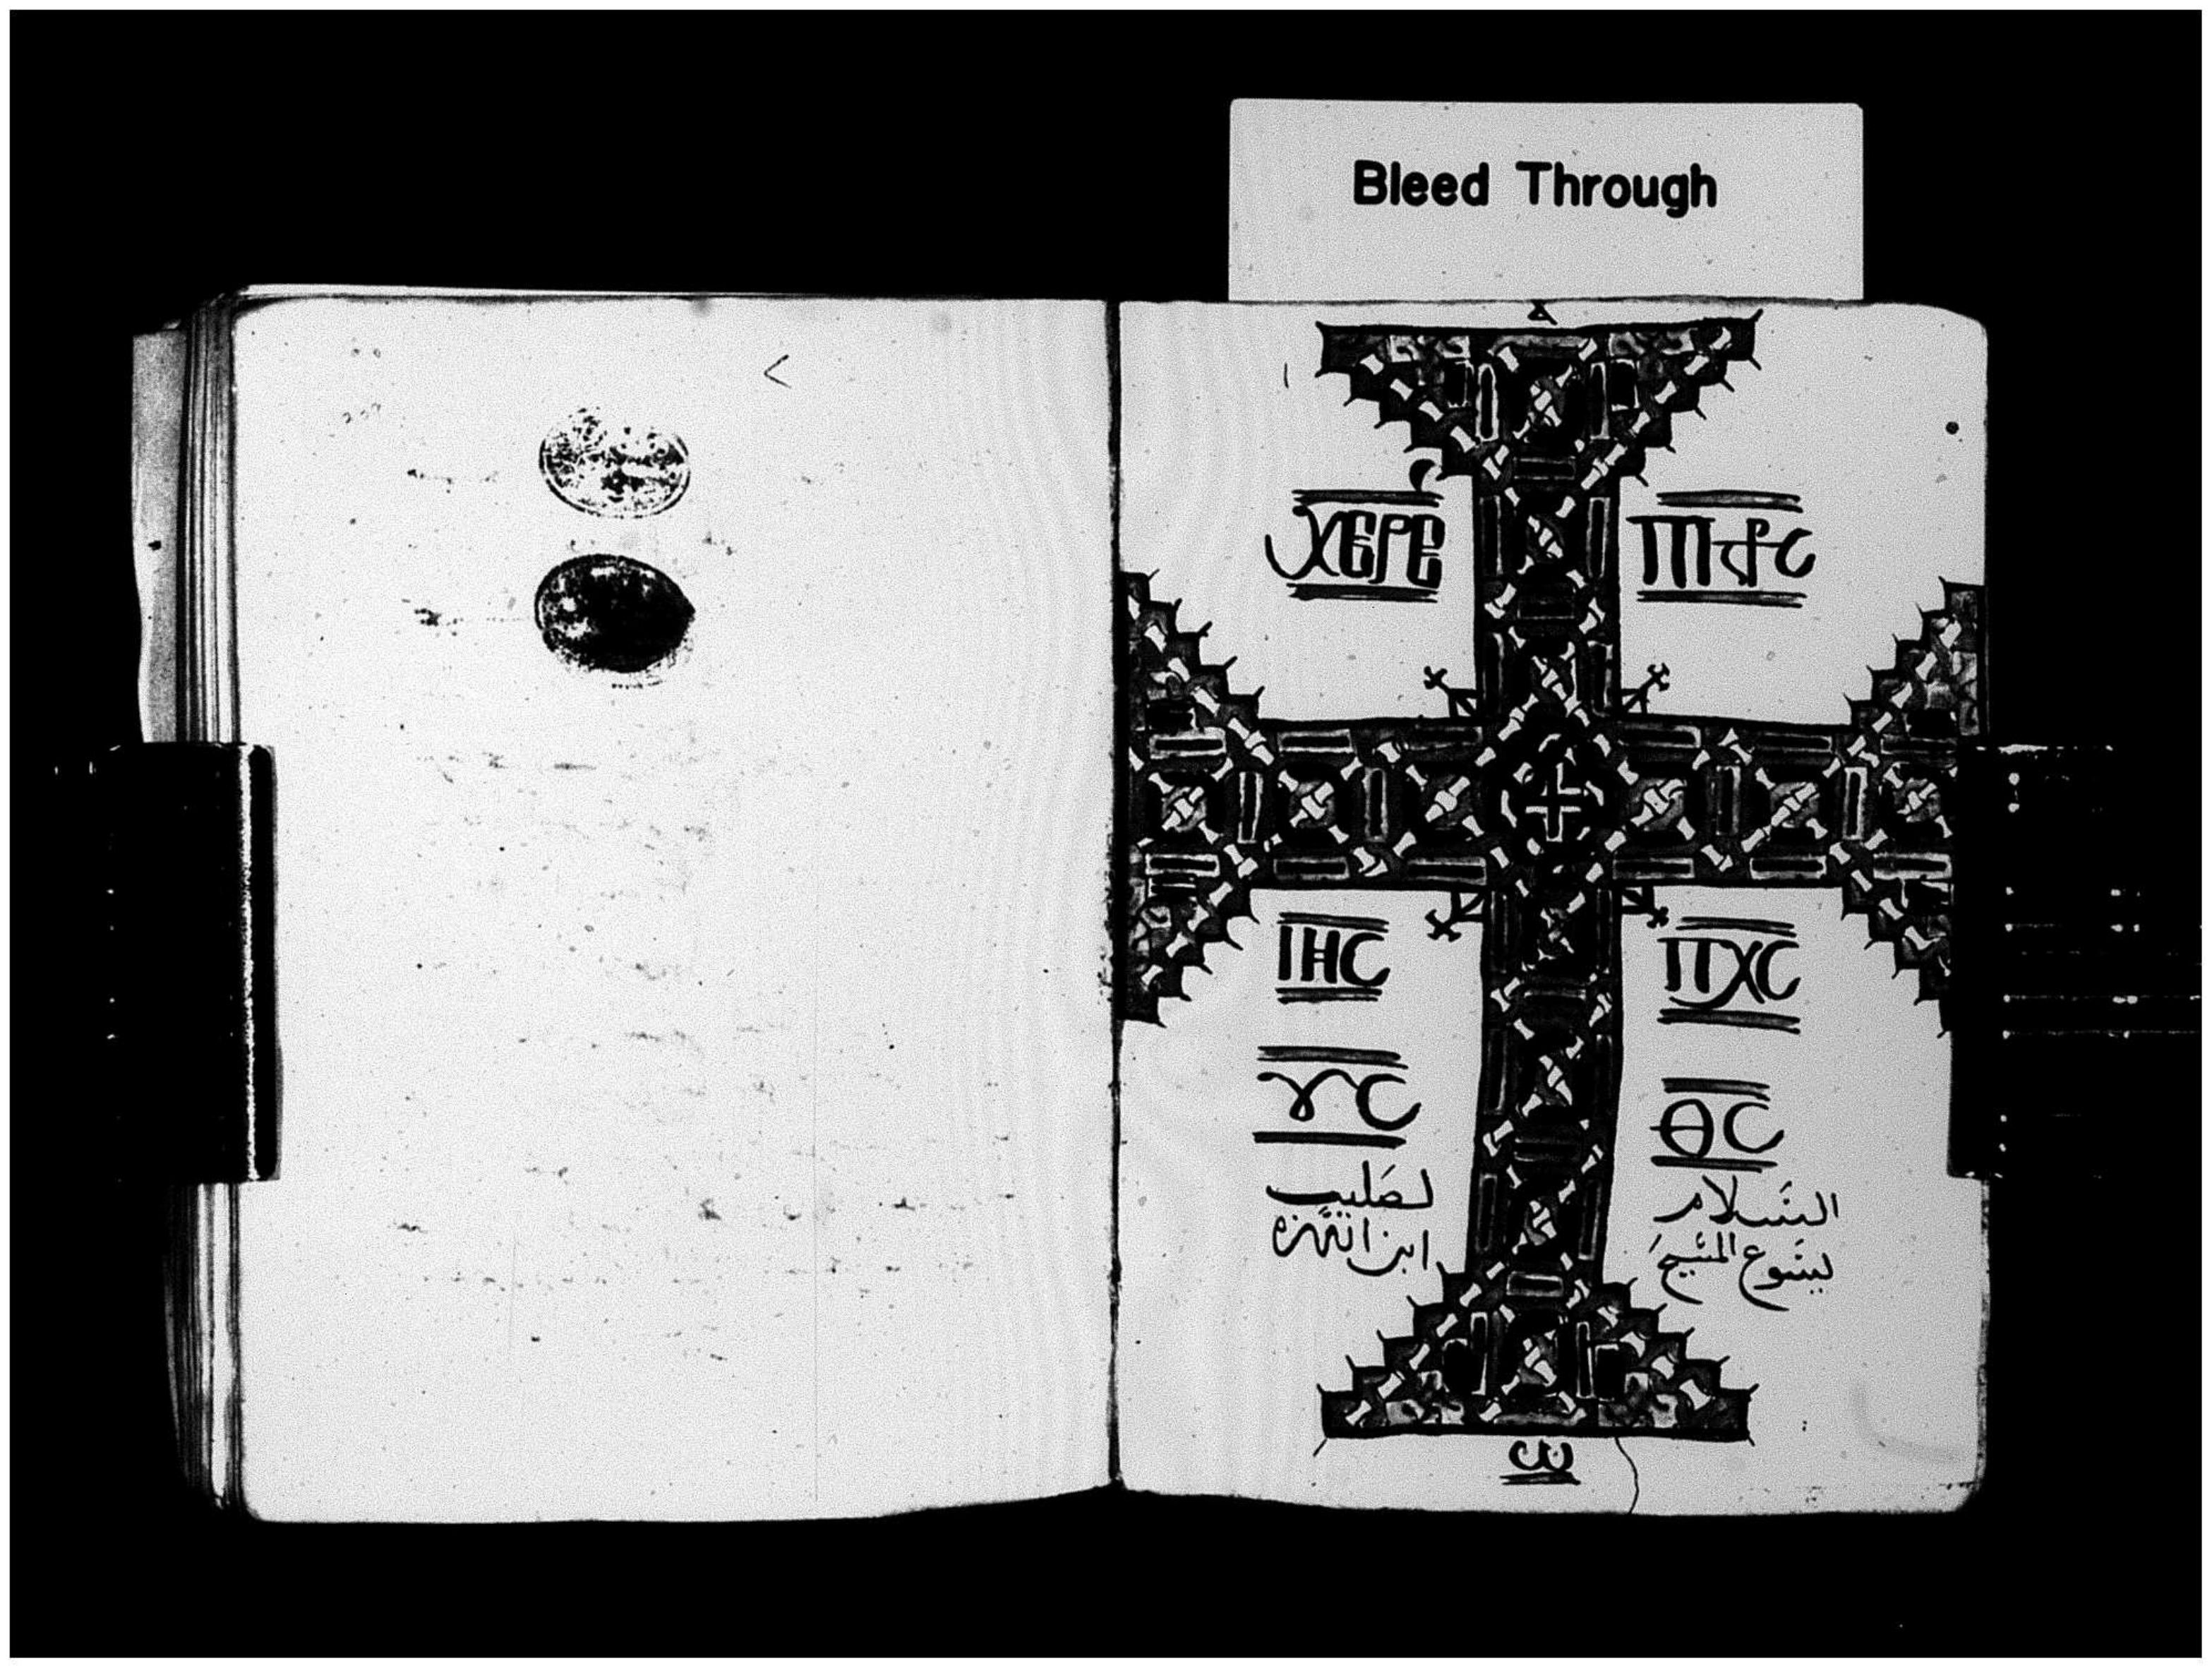 Bleed Through
ⲁ
ⲭⲉⲣⲉ ⲡ⳨ⲥ
ⲓⲏⲥ ⲡⲭⲥ
ⲩⲥ ⲑⲥ
السَلام لصَليب
ليسَوع المسَيح ابن الله
ⲱ